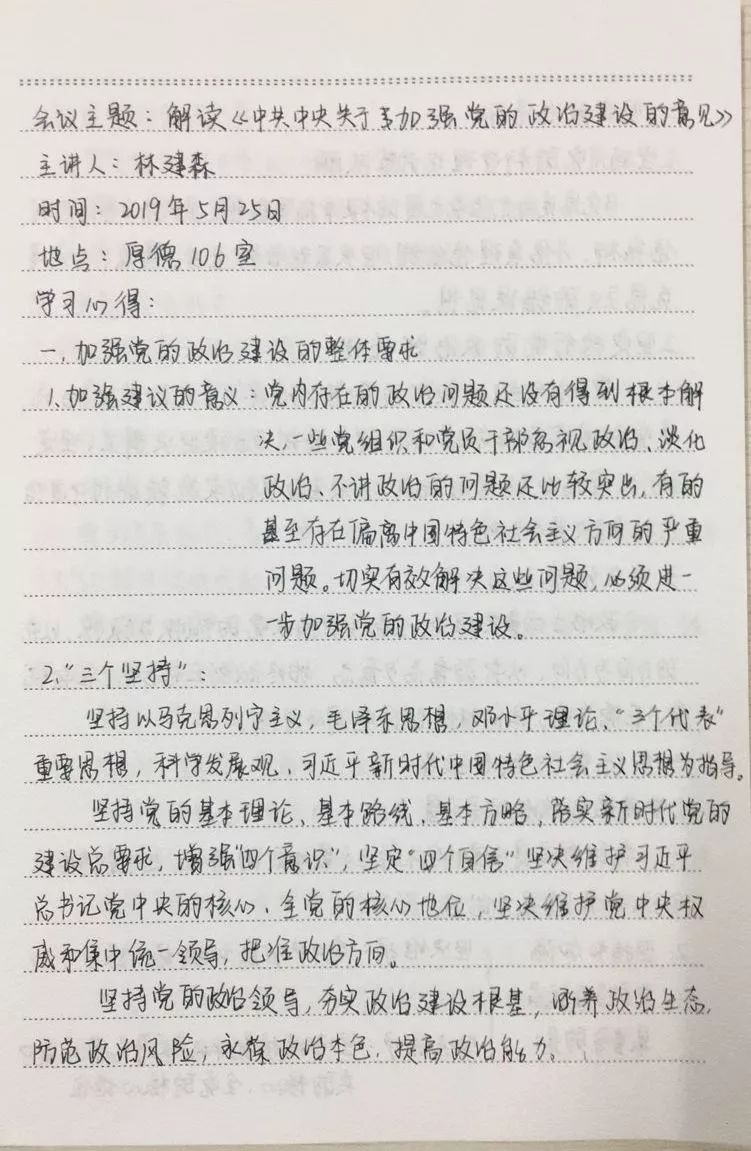 会议主题：解读《中共中央关于加强党的政治建设的意见》
主讲人：林建森
时间：2019年5月25日
地点：厚德106室
学习心得：
一、加强党的政治建设的整体要求
1.加强建议的意义：党内存在的政治问题还没有得到根本解
决，一些党组织和党员干部忽视政治、淡化
政治、不讲政治的问题还比较突出，有的
甚至存在偏离中国特色社会主义方向的严重
问题。切实有效解决这些问题，必须进一
步加强党的政治建设。
2.“三个坚持”：
坚持以马克思列宁主义，毛泽东思想，邓小平理论、“三个代表”
重要思想，科学发展观、习近平新时代中国特色社会主义思想为指导。
坚持党的基本理论、基本路线、基本方略，落实新时代党的
建设总要求，增强“四个意识”，坚定“四个自信”坚决维护习近平
总书记党中央的核心、全党的核心地位，坚决维护党中央权
威和集中统一领导，把准政治方向。
坚持党的政治领导，夯实政治建设根基，涵养政治生态，
防范政治风险，永葆政治本色，提高政治能力。